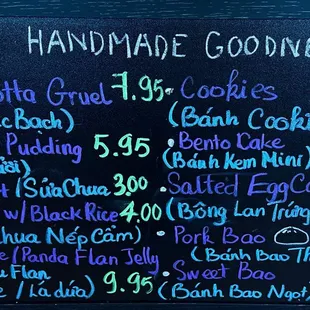 HANDMADE GOODNE
otta Gruel 7.95
c Bạch)
Pudding 5.95
(Sữa Chua 3.00
w/ Black Rice 4.00
hua Nếp Cẩm)
e / Panda Flan Jelly
Flan
/ Lá dứa) 9.95
• Cookies
(Bánh Cooki
• Bento Cake
(Bánh Kem Mini)
• Salted Egg Ca
(Bông Lan Trứng
• Pork Bao
(Bánh Bao Th
• Sweet Bao
(Bánh Bao Ngọt)